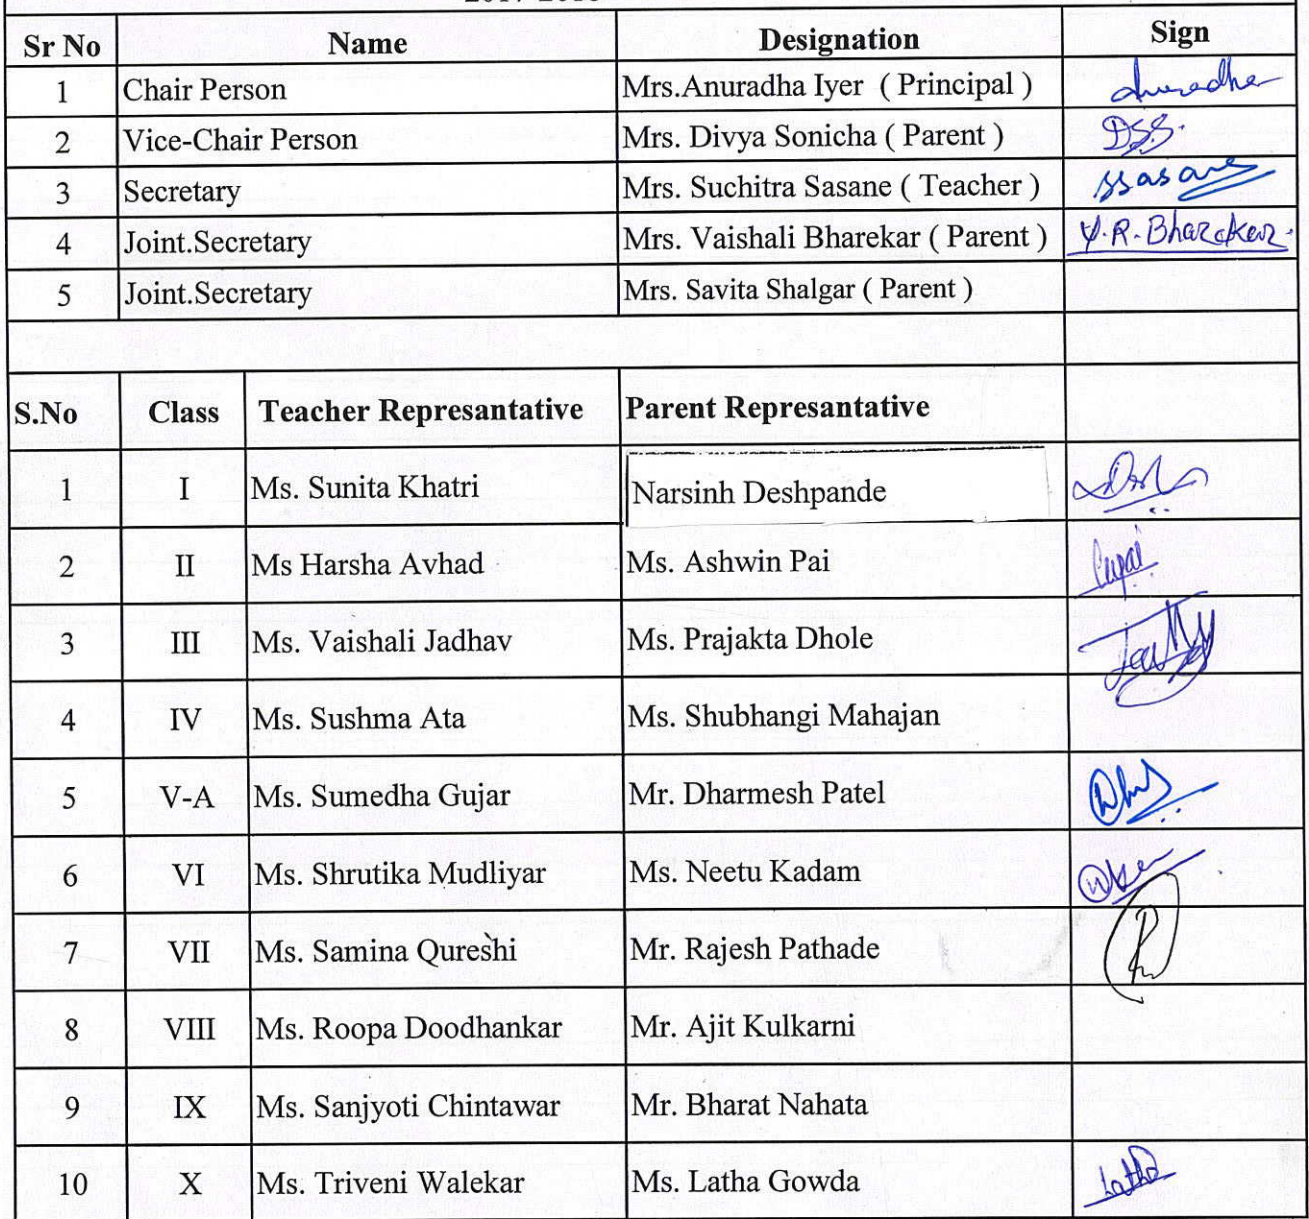 Sr No Name Designation Sign
1 Chair Person Mrs.Anuradha Iyer ( Principal ) Anuradha
2 Vice-Chair Person Mrs. Divya Sonicha ( Parent )
3 Secretary Mrs. Suchitra Sasane ( Teacher ) SSasane
4 Joint.Secretary Mrs. Vaishali Bharekar ( Parent ) V.R.Bharekar.
5 Joint.Secretary Mrs. Savita Shalgar ( Parent )
S.No Class Teacher Represantative Parent Represantative
1 I Ms. Sunita Khatri Narsinh Deshpande
2 II Ms Harsha Avhad Ms. Ashwin Pai
3 III Ms. Vaishali Jadhav Ms. Prajakta Dhole
4 IV Ms. Sushma Ata Ms. Shubhangi Mahajan
5 V-A Ms. Sumedha Gujar Mr. Dharmesh Patel
6 VI Ms. Shrutika Mudliyar Ms. Neetu Kadam
7 VII Ms. Samina Qureshi Mr. Rajesh Pathade
8 VIII Ms. Roopa Doodhankar Mr. Ajit Kulkarni
9 IX Ms. Sanjyoti Chintawar Mr. Bharat Nahata
10 X Ms. Triveni Walekar Ms. Latha Gowda Latha